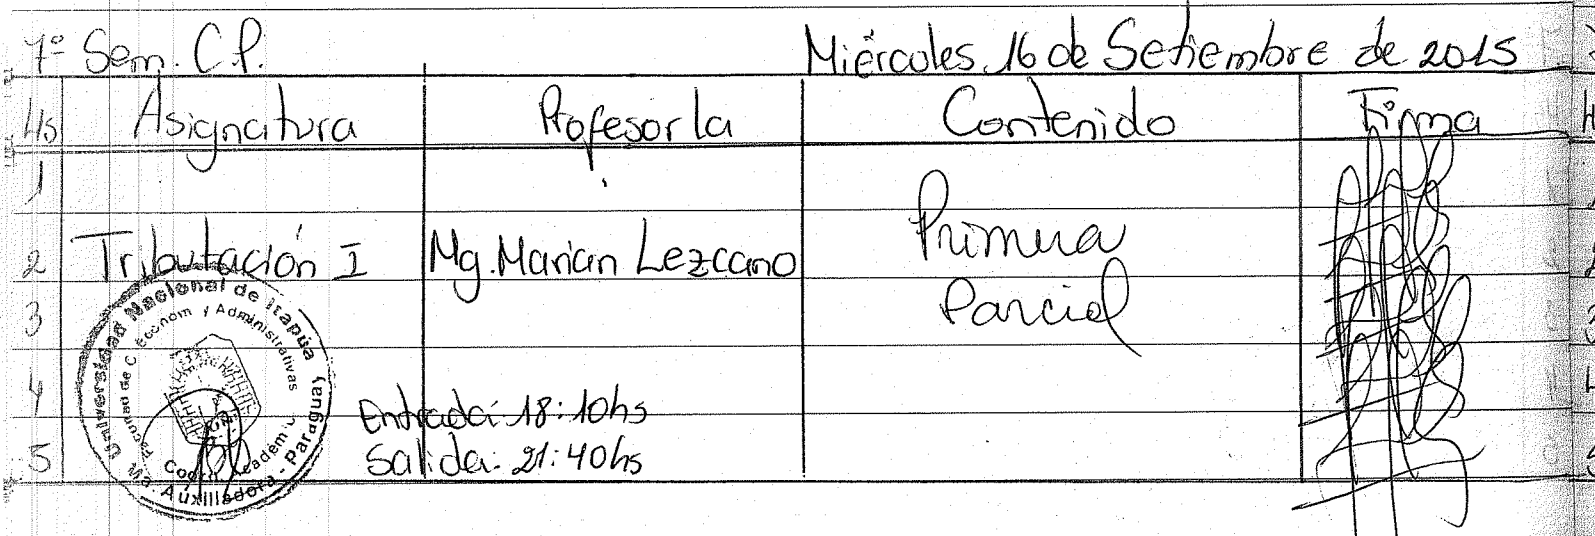 7º Sem. C.P. Miércoles 16 de Setiembre de 2015
Hs Asignatura Profesor/a Contenido Firma
1
2 Tributación I Mg. Marian Lezcano Primera
3 Parcial
4 Entrada: 18:10hs
5 Salida: 21:40hs
Universidad Nacional de Itapúa
Facultad de C. Econom y Administrativas
Ma. Auxiliadora - Paraguay